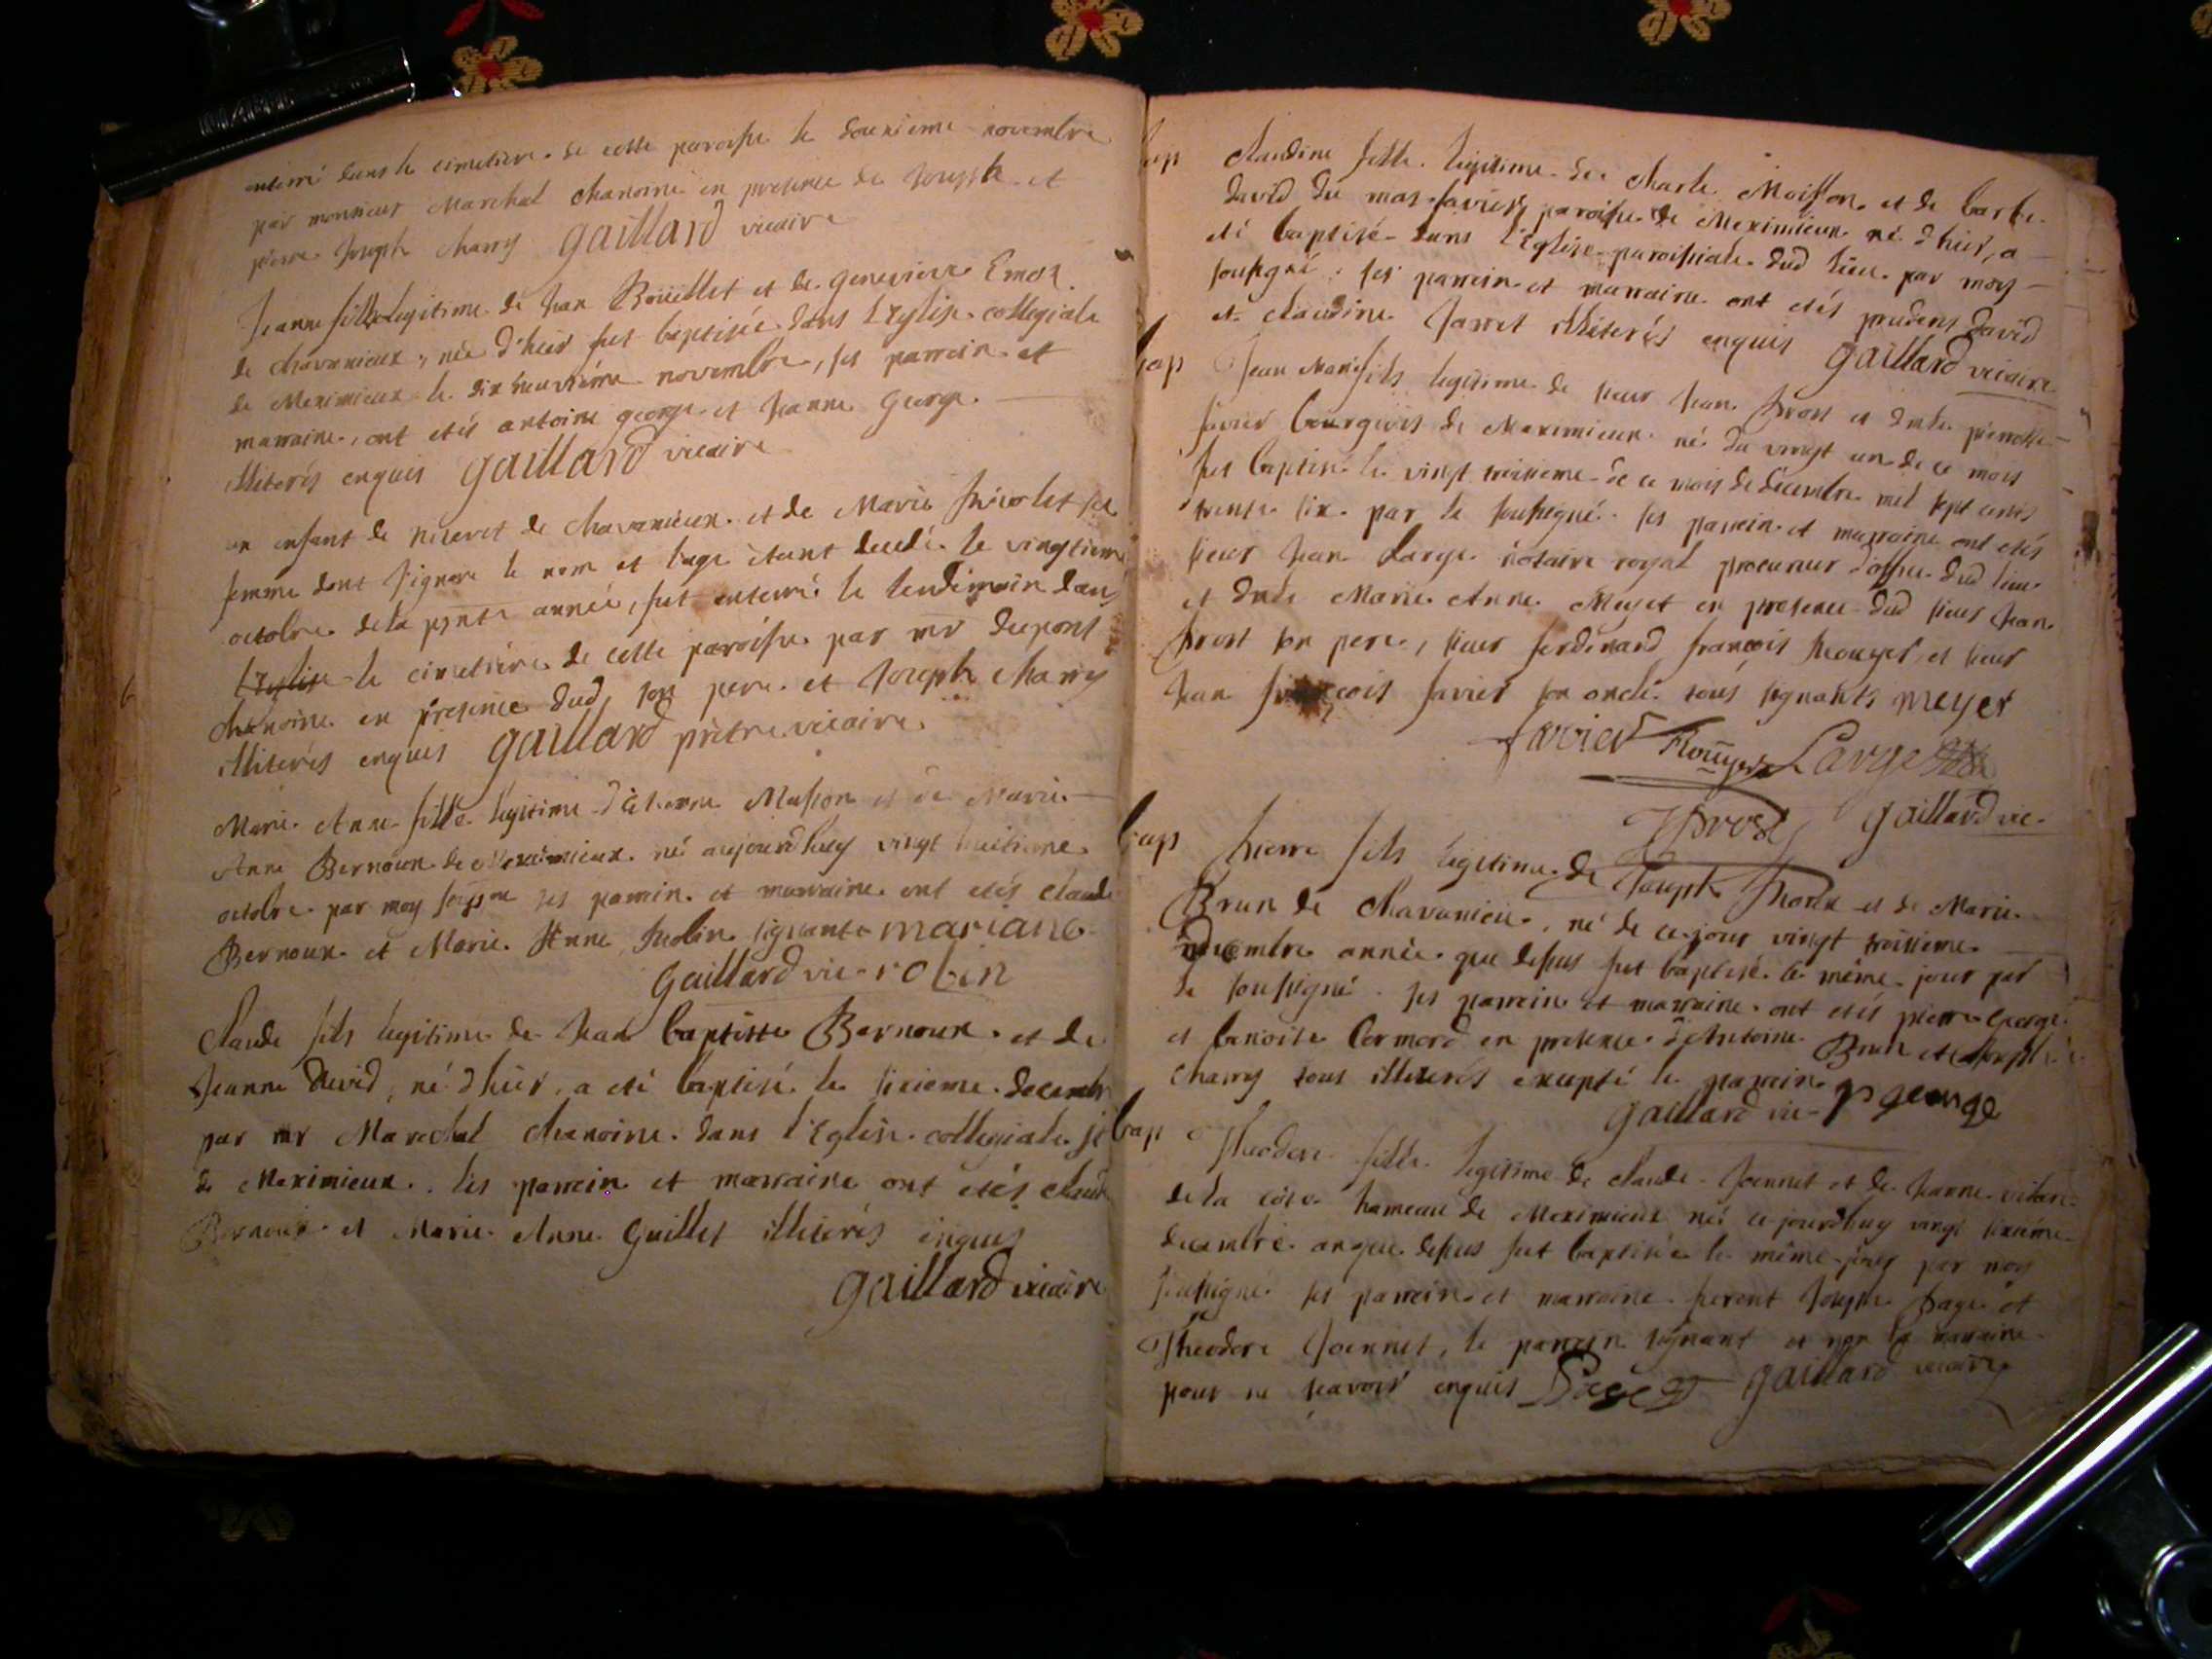 enterré dans le cimetiere de cette paroisse le douzieme novembre
par monsieur Marchal chanoine en presence de Joseph et
pierre Joseph Charry gaillard vicaire
Jeanne fille legitime de Jean Boüillet et de genevieve
de chavanieux, née d'hier fut baptisée dans L'Eglise collegiale
de Meximieux le dix neuvième novembre, ses parrein et
marraine, ont etés antoine george et Jeanne George
illiterés enquis gaillard vicaire
un enfant de niseret de chavanieux et de Marie sa
femme dont J'ignore le nom et l'age étant decedé le vingtieme
octobre de la pnte année, fut enterré le lendemain dans
L'Eglise le cimetiére de cette paroisse par mr dupont
chanoine en presence dud son pere et Joseph Charry
illiterés enquis gaillard prêtre vicaire
Marie Anne fille legitime d'étienne Masson et de Marie
Anne Bernoux de Meximieux né aujourdhuy vingt huitieme
octobre par moy ses parrein et marraine ont etés Claude
Bernoux et Marie Anne signante mariane
Gaillard vic robin
Claude fils legitime de Jean baptiste Bernoux et de
Jeanne David, né d'hier, a eté baptisé le sixieme decembre
par mr Marchal chanoine dans l'Eglise collegiale
de Meximieux. ses parrein et marraine ont etés claude
Bernoux et Marie Anne Guillet illiterés enquis
gaillard vicaire
bap Claudine fille legitime de Charle Moisson et de barbe
david du mas paroisse de Meximieux né d'hier, a
eté baptisé dans l'Eglise paroissiale dud lieu par moy
soussigné ses parrein et marraine ont etés prudent David
et claudine Jarret illiterés enquis gaillard vicaire
bap Jean Marie fils legitime de sieur Jean Prost et pierrette
favier bourgeois de Meximieux né du vingt un de ce mois
fut baptisé le vingt troisieme de ce mois de decembre mil sept cents
trente six par le soussigné ses parrein et marraine ont etés
sieur Jean Large notaire royal procureur d'office dud lieu
et Marie Anne Meyet en presence dud sieur Jean
Prost son pere, sieur ferdinand françois et sieur
Jean françois favier son oncle tous signants meyet
favier Large
JProst gaillard vic
bap Pierre fils legitime de Joseph et de Marie
Brun de Chavanieu, né de ce jour vingt troisieme
decembre année que dessus fut baptisé le même jour par
le soussigné ses parrein et marraine ont etés pierre George
et benoite Cormord en presence d'Antoine Brun et Joseph
Charry tous illiterés excepté le parrein
gaillard vic p george
bap Theodore fille legitime de claude Joannet et de Jeanne
de la côte hameau de Meximieux né ce jourdhuy vingt sixieme
decembre an que dessus fut baptisée le même jour par moy
soussigné ses parrein et marraine furent Joseph Page et
Theodore Joannet, le parrein signant et non la marraine
pour ne sçavoir enquis gaillard vicaire